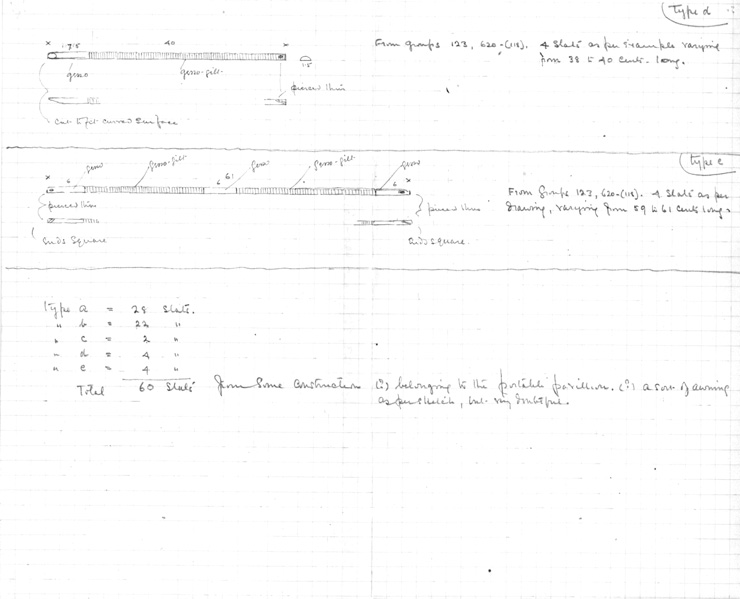 Type d
40
1.7 1.5
From groups 123, 620-(118). 4 Slats as per example varying
from 38 to 40 cents. long.
1.5
gesso
gesso-gilt
pierced thus
Cut to fit curved surface
Type e
gesso
gesso-gilt
gesso
gesso-gilt
gesso
6
6
61
6
From Groups 123, 620-(118). 4 Slats as per
drawing, varying from 59 to 61 cents long.
pierced thus
pierced thus
Ends Square
Ends Square
Type a = 28 Slats.
" b = 22 "
" c = 2 "
" d = 4 "
" e = 4 "
Total 60 Slats From some construction (?) belonging to the portable pavillion. (?) a sort of awning
as per sketch, but very doubtful.